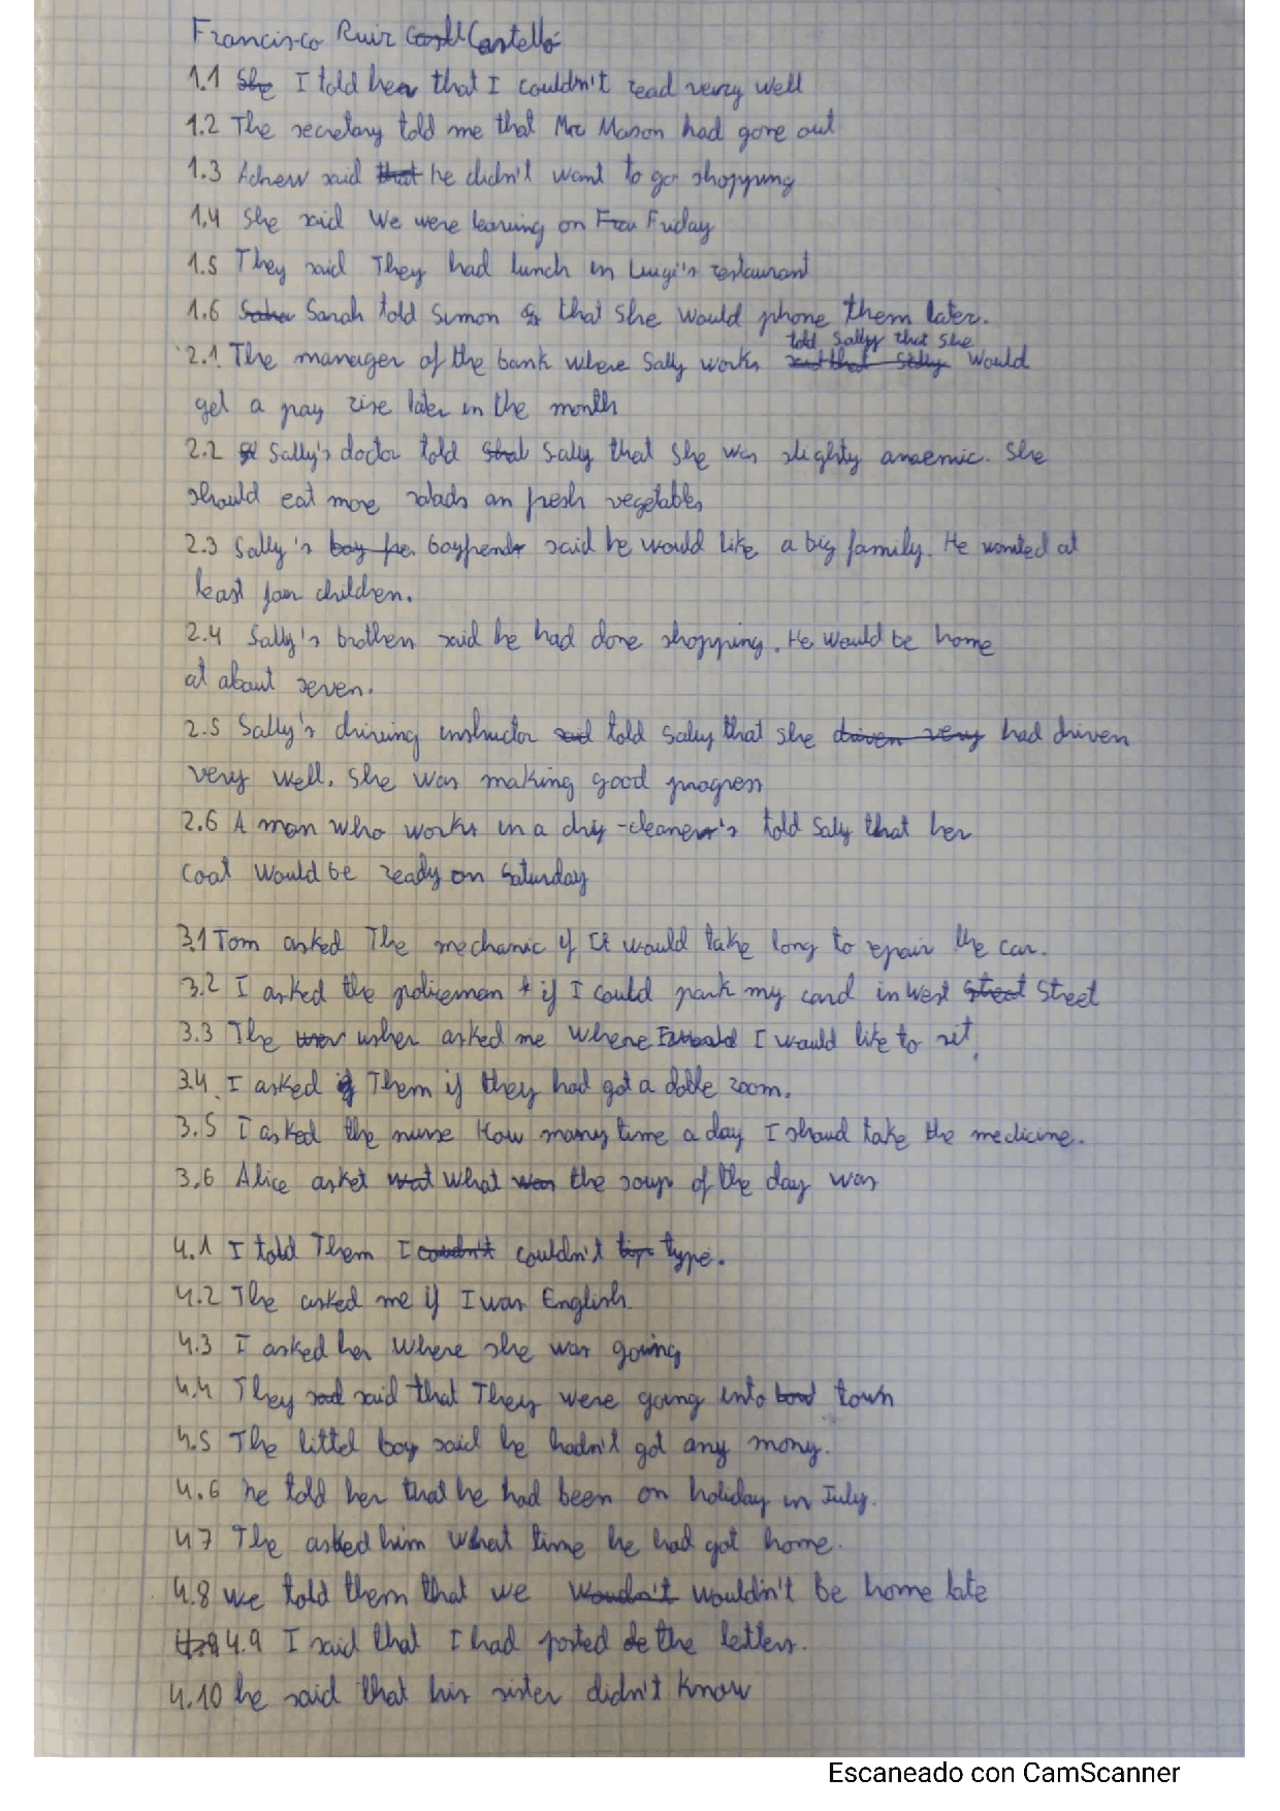 Francisco Ruiz Castelló
1.1 She I told her that I couldn't read very well
1.2 The secretary told me that Mr Mason had gone out
1.3 Adrew said that he didn't want to go shopping
1.4 She said We were leaving on Friday
1.5 They said They had lunch in Luigi's restaurant
1.6 Sarah told Simon that she would phone them later.
told Sally that she
2.1 The manager of the bank where Sally works said that Sally would
get a pay rise later in the month
2.2 Sally's doctor told Sally that she was slighty anaemic. She
should eat more salads an fresh vegetables
2.3 Sally's boy fre boyfrend said he would like a big family. He wanted at
least four children.
2.4 Sally's brother said he had done shopping. He would be home
at about seven.
2.5 Sally's driving instructor said told Sally that she driven very had driven
very well. She was making good progress
2.6 A man who works in a dry-cleaner's told Sally that her
coat would be ready on Saturday
3.1 Tom asked The mechanic if It would take long to repair the car.
3.2 I asked the policeman if I could park my card in West Street Street
3.3 The usher asked me where I would like to sit.
3.4 I asked if Them if they had got a doble room.
3.5 I asked the nurse How many time a day I shoud take the medicine.
3.6 Alice asket wat what was the soup of the day was
4.1 I told Them I coudn't couldn't type.
4.2 The asked me if I was English.
4.3 I asked her Where she was going
4.4 They sad said that They were going into town
4.5 The littel boy said he hadn't got any mony.
4.6 he told her that he had been on holiday in July.
4.7 The asked him What time he had got home.
4.8 we told them that we Woudn't wouldn't be home late
4.9 I said that I had posted de the letters.
4.10 he said that his sister didn't Know
Escaneado con CamScanner